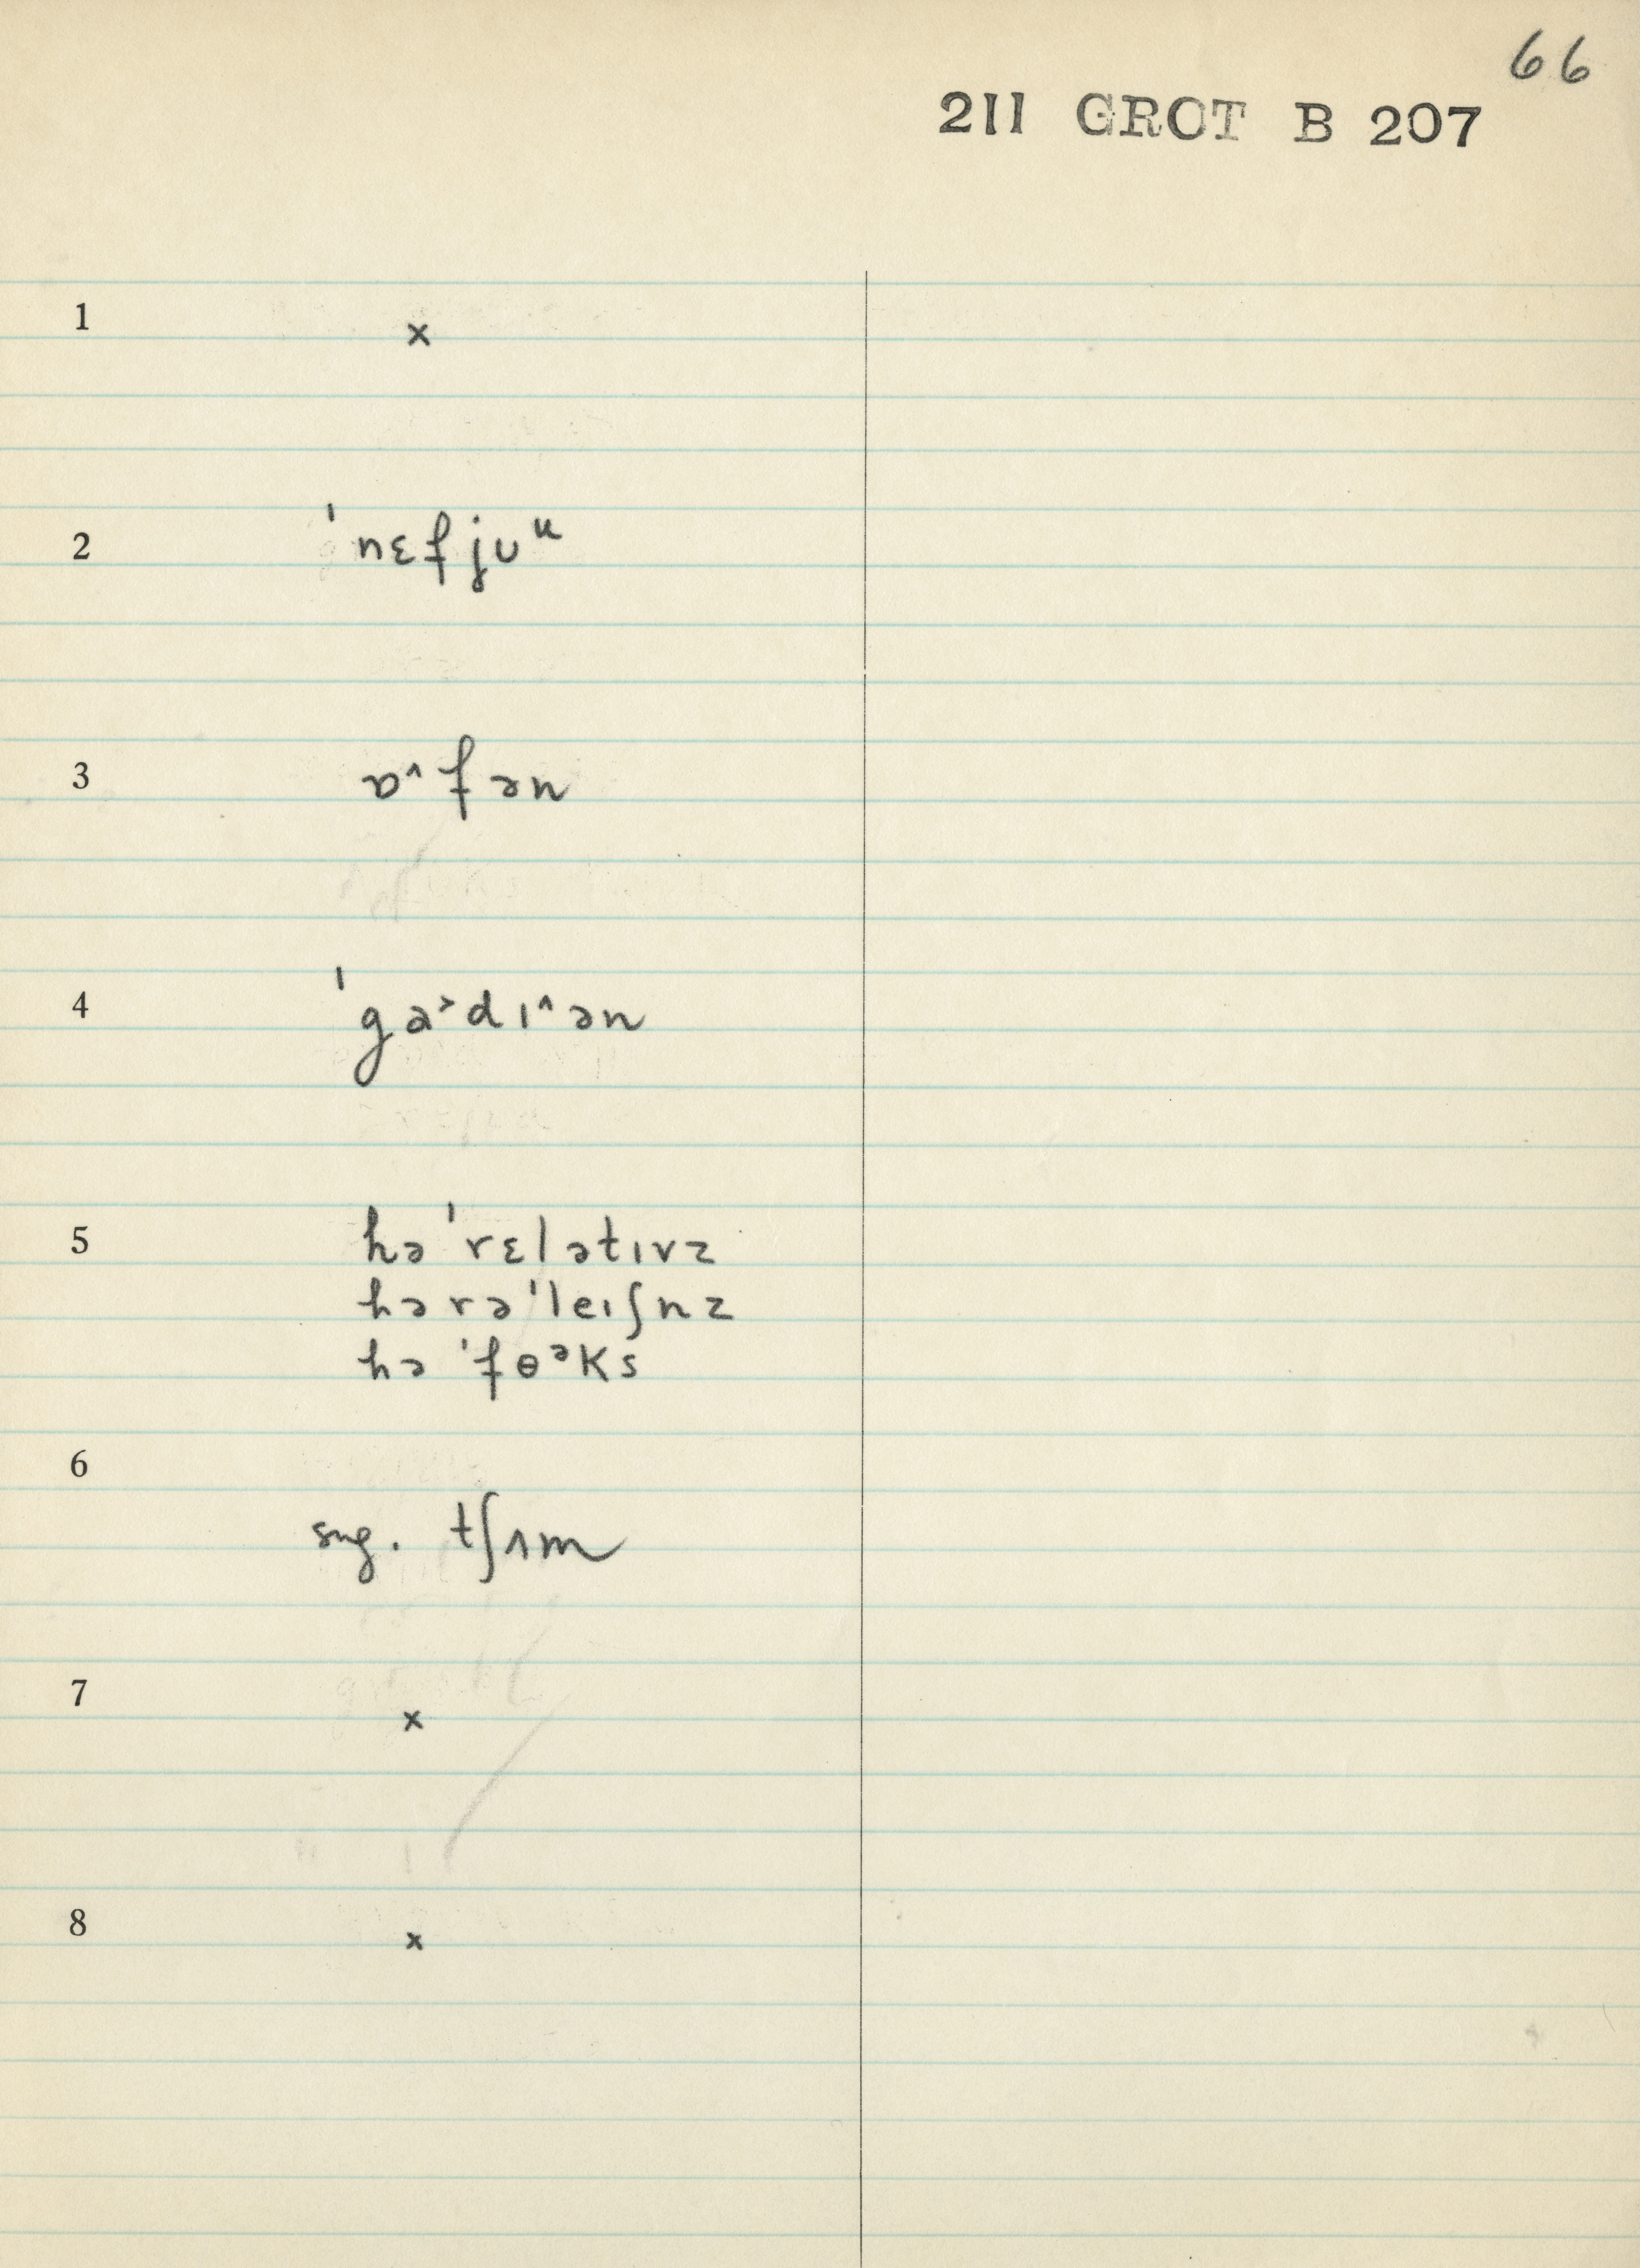 66
211 GROT B 207
1 ×
2 ˈnɛfjʊᵘ
3 ɒ˄fən
4 ˈga˃dɪ˄ən
5 hə ˈrɛlətɪvz
hə rəˈleɪʃnz
hə ˈfɵᵊks
6
sng. tʃʌm
7 ×
8 ×